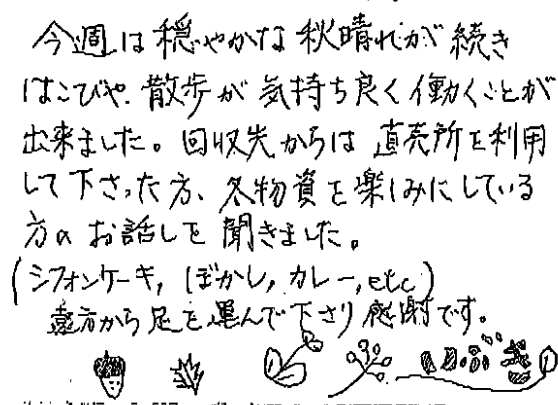 今週は穏やかな秋晴れが続き
はこびや、散歩が気持ち良く働くことが
出来ました。回収先からは直売所を利用
して下さった方、冬物資を楽しみにしている
方のお話しを聞きました。
(シフォンケーキ, ぼかし, カレー, etc)
遠方から足を運んで下さり感謝です。